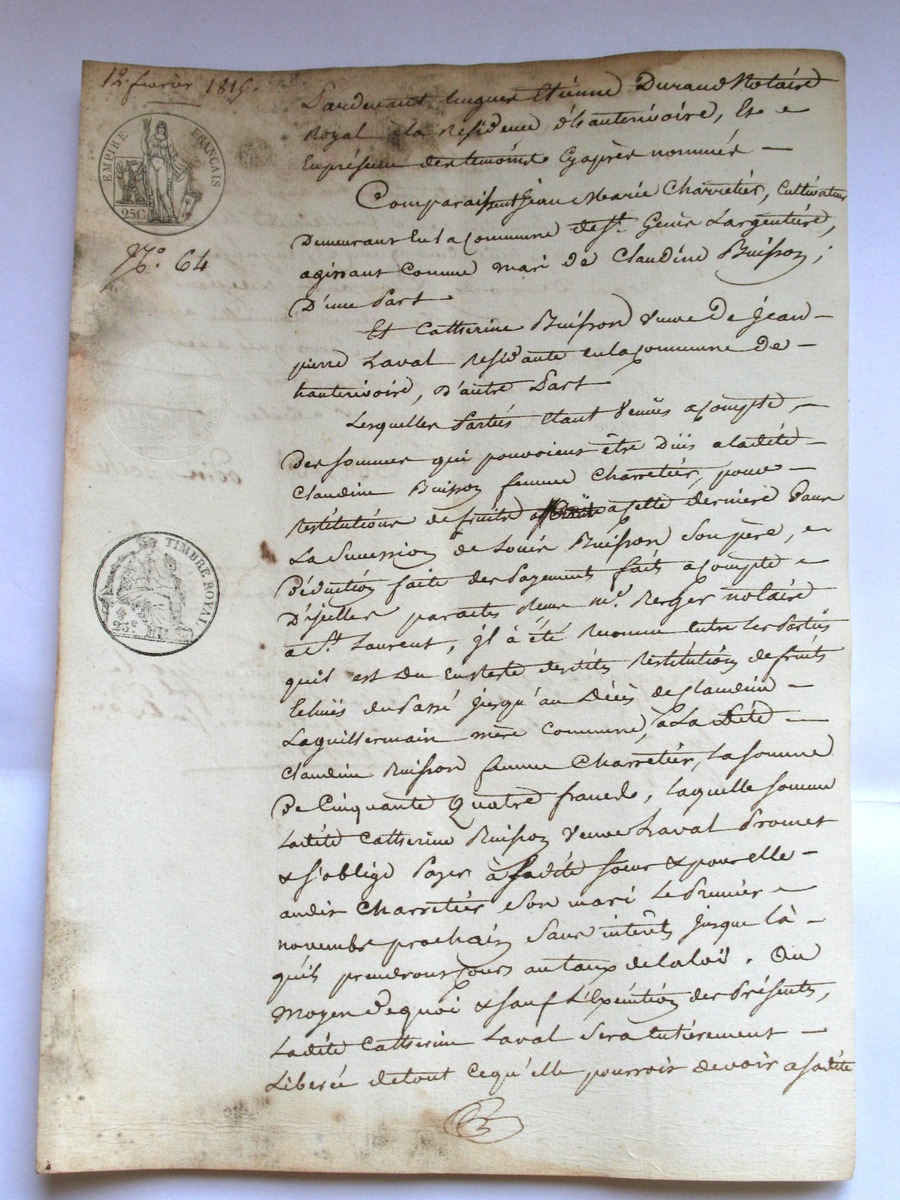 12 fevrier 1815.
EMPIRE FRANÇAIS
25C
N.º 64
TIMBRE ROYAL
25c
Pardevant hugues Etienne Durand Notaire
Royal à la Résidence d'hauterivoire, Et
En présence des temoins Cyaprès nommés —
Comparaissent Jean Marie Charretier, Cultivateur
Demeurant En la Commune de St. Genis Largentière,
agissant Comme mari de Claudine Buisson;
D'une Part
Et Catherine Buisson Veuve De Jean-
pierre Laval Résidante en la Commune De —
hauterivoire, D'autre Part
Lesquelles Parties Etant Venües a Compte —
Des sommes qui pouvoient être Düs a ladite —
Claudine Buisson femme Charretier, pour —
Restitutions de fruits a cette derniere Dans
La Succession de Louis Buisson Son père, et
Déduction faite des Payements faits a compte
D'icelles par actes Reçus Me. Berger notaire
a St. Laurent, il à été Reconnu Entre les Parties
quil est Du En reste desdites Restitutions de fruits
Echües du Passé jusqu'au Décès de Claudine —
Laguillermain mère Commune, à La Dite —
Claudine Buisson femme Charretier, La somme
De Cinquante Quatre francs, laquelle somme
Ladite Catherine Buisson Veuve Laval Promet
& s'oblige Payer à Sadite Soeur & pour elle —
audit Charretier Son mari Le Premier
novembre prochain Sans intérêts jusque là —
quils prendront Cours au taux de la loi. Au
Moyen De quoi & sauf L'Exécution des Présentes,
Ladite Catherine Laval Sera Entièrement —
Libérée de tout Ce qu'elle pourroit devoir a sadite